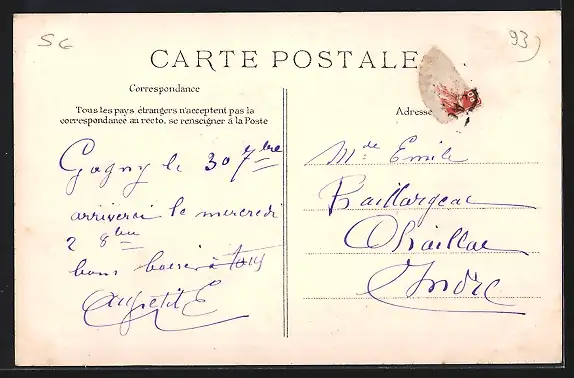 S G
93)
CARTE POSTALE
Correspondance
Tous les pays étrangers n'acceptent pas la
correspondance au recto, se renseigner à la Poste
Adresse
Gagny le 30 7bre
arriverai le mercredi
2 8bre
bons baiser à tous
Aupetit E
Mde Emile
Baillargeau
Chaillac
Indre